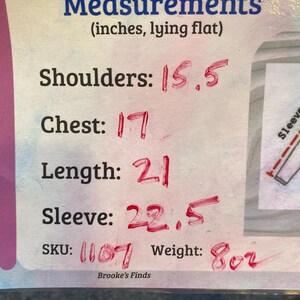 Measurements
(inches, lying flat)
Shoulders: 15.5
Chest: 17
Length: 21
Sleeve: 22.5
Sleeve
SKU: 1107 Weight: 8oz
Brooke's Finds